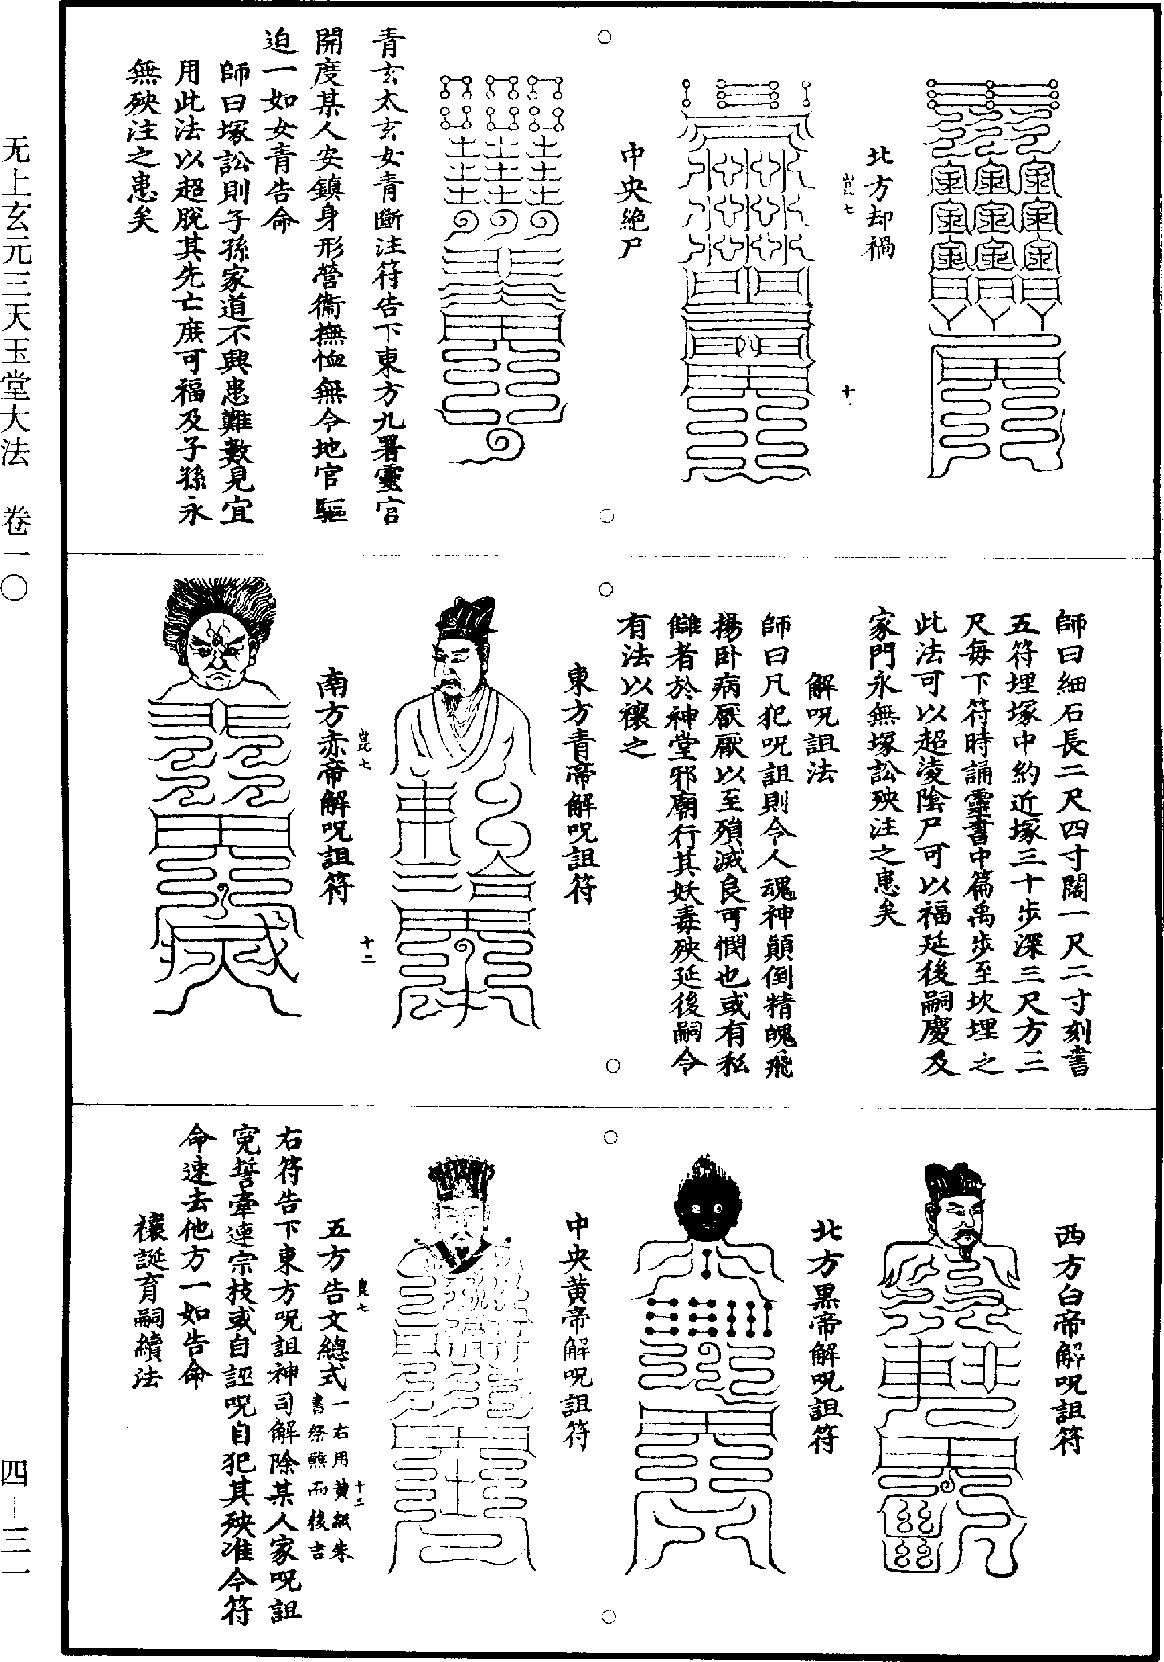 北方却禍
中央絶尸
青玄太玄女青斷注符告下東方九署靈官
開度某人安鎮身形營衛撫恤無令地官驅
迫一如女青告命
師曰塚訟則子孫家道不興患難數見宜
用此法以超脫其先亡庶可福及子孫永
無殃注之患矣
師曰細石長二尺四寸闊一尺二寸刻書
五符埋塚中約近塚三十步深三尺方三
尺每下符時誦靈書中篇禹步至坎埋之
此法可以超淩陰尸可以福延後嗣慶及
家門永無塚訟殃注之患矣
解呪詛法
師曰凡犯呪詛則令人魂神顛倒精魄飛
揚卧病厭厭以至殞滅良可憫也或有私
讎者於神堂邪廟行其妖毒殃延後嗣令
有法以禳之
東方青帝解呪詛符
南方赤帝解呪詛符
十二
西方白帝解呪詛符
北方黑帝解呪詛符
中央黄帝解呪詛符
五方告文總式
一右用黄紙朱
書祭醮而後吉
十三
右符告下東方呪詛神司解除某人家呪詛
寃誓牽連宗枝或自誣呪自犯其殃准今符
命速去他方一如告命
禳誕育嗣續法
无上玄元三天玉堂大法 卷一〇
四—三一